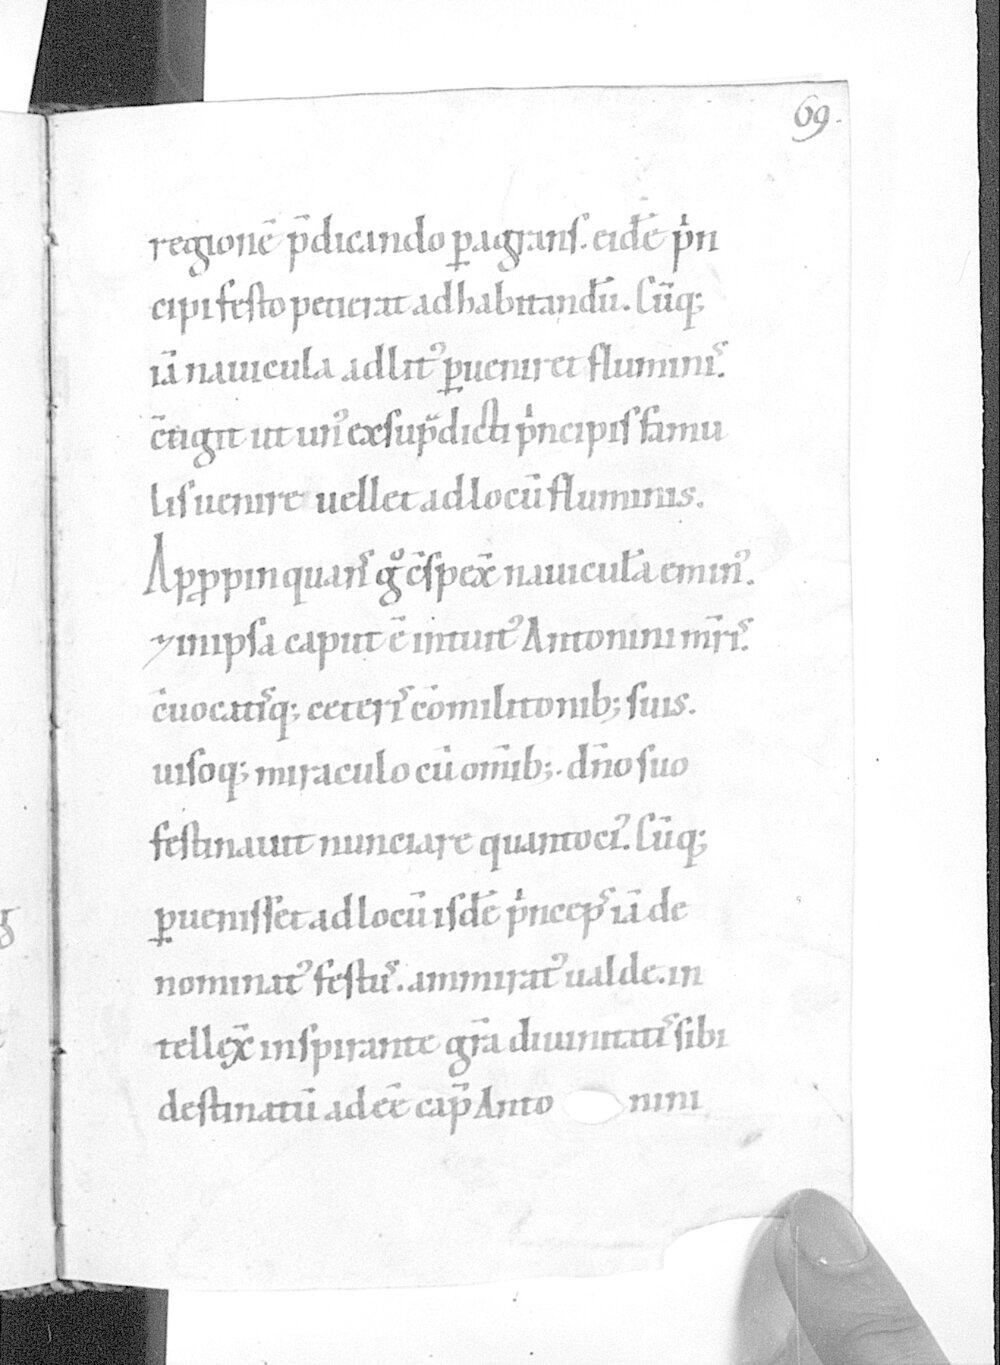 69.
regionē p̄dicando ꝑagrans. eidē pⁱn
cipi festo petierat ad habitandū. Cūq;
iā nauicula ad litꝰ ꝑueniret fluminis.
c̄tigit ut unꝰ ex sup̄dicti pⁱncipis famu
lis uenire uellet ad locū fluminis.
Apꝓpinquans gͦ c̄spex̄ nauiculā eminꝰ.
⁊ in ipsa caput ē intuitꝰ Antonini mr̄is.
c̄uocatisq; ceteris cōmilitonib; suis.
uisoq; miraculo cū om̄ib;. dn̄o suo
festinauit nunciare quantociꝰ. Cūq;
ꝑuenisset ad locū isdē pⁱnceps iā de
nominatꝰ festus. ammiratꝰ ualde. in
tellex̄ inspirante gr̄a diuinitatis sibi
destinatū ad eē cap̄ Anto nini